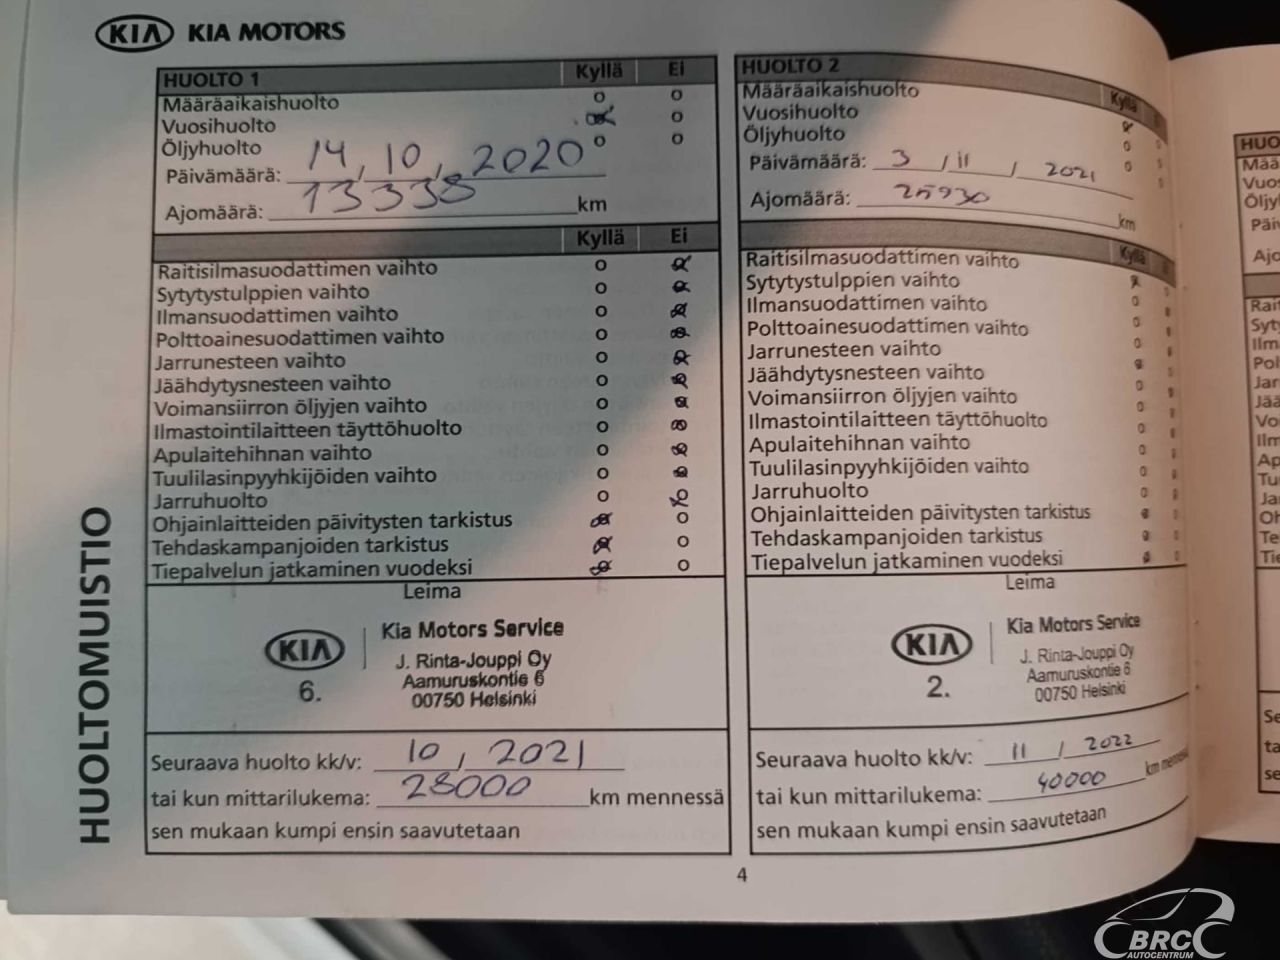 KIA KIA MOTORS
HUOLTOMUISTIO
HUOLTO 1 Kyllä Ei
Määräaikaishuolto
Vuosihuolto
Öljyhuolto
Päivämäärä: 14, 10, 2020
Ajomäärä: 13338 km
Kyllä Ei
Raitisilmasuodattimen vaihto
Sytytystulppien vaihto
Ilmansuodattimen vaihto
Polttoainesuodattimen vaihto
Jarrunesteen vaihto
Jäähdytysnesteen vaihto
Voimansiirron öljyjen vaihto
Ilmastointilaitteen täyttöhuolto
Apulaitehihnan vaihto
Tuulilasinpyyhkijöiden vaihto
Jarruhuolto
Ohjainlaitteiden päivitysten tarkistus
Tehdaskampanjoiden tarkistus
Tiepalvelun jatkaminen vuodeksi
Leima
KIA Kia Motors Service
J. Rinta-Jouppi Oy
Aamuruskontie 6
6. 00750 Helsinki
Seuraava huolto kk/v: 10, 2021
tai kun mittarilukema: 28000 km mennessä
sen mukaan kumpi ensin saavutetaan
HUOLTO 2 Kyllä
Määräaikaishuolto
Vuosihuolto
Öljyhuolto
Päivämäärä: 3 / 11 / 2021
Ajomäärä: 25930 km
Kyllä
Raitisilmasuodattimen vaihto
Sytytystulppien vaihto
Ilmansuodattimen vaihto
Polttoainesuodattimen vaihto
Jarrunesteen vaihto
Jäähdytysnesteen vaihto
Voimansiirron öljyjen vaihto
Ilmastointilaitteen täyttöhuolto
Apulaitehihnan vaihto
Tuulilasinpyyhkijöiden vaihto
Jarruhuolto
Ohjainlaitteiden päivitysten tarkistus
Tehdaskampanjoiden tarkistus
Tiepalvelun jatkaminen vuodeksi
Leima
KIA Kia Motors Service
J. Rinta-Jouppi Oy
Aamuruskontie 6
2. 00750 Helsinki
Seuraava huolto kk/v: 11 / 2022
tai kun mittarilukema: 40000 km mennessä
sen mukaan kumpi ensin saavutetaan
4
BRC
AUTOCENTRUM